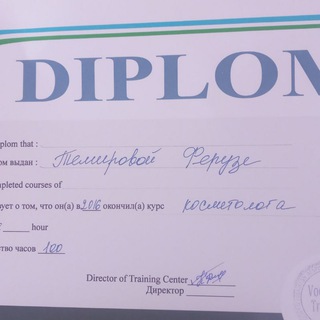 DIPLOM
plom that :
ом выдан : Темировой Ферузе
mpleted courses of
ует о том, что он(а) в 2016 окончил(а) курс косметолога
hour
ство часов 100
Director of Training Center
Директор